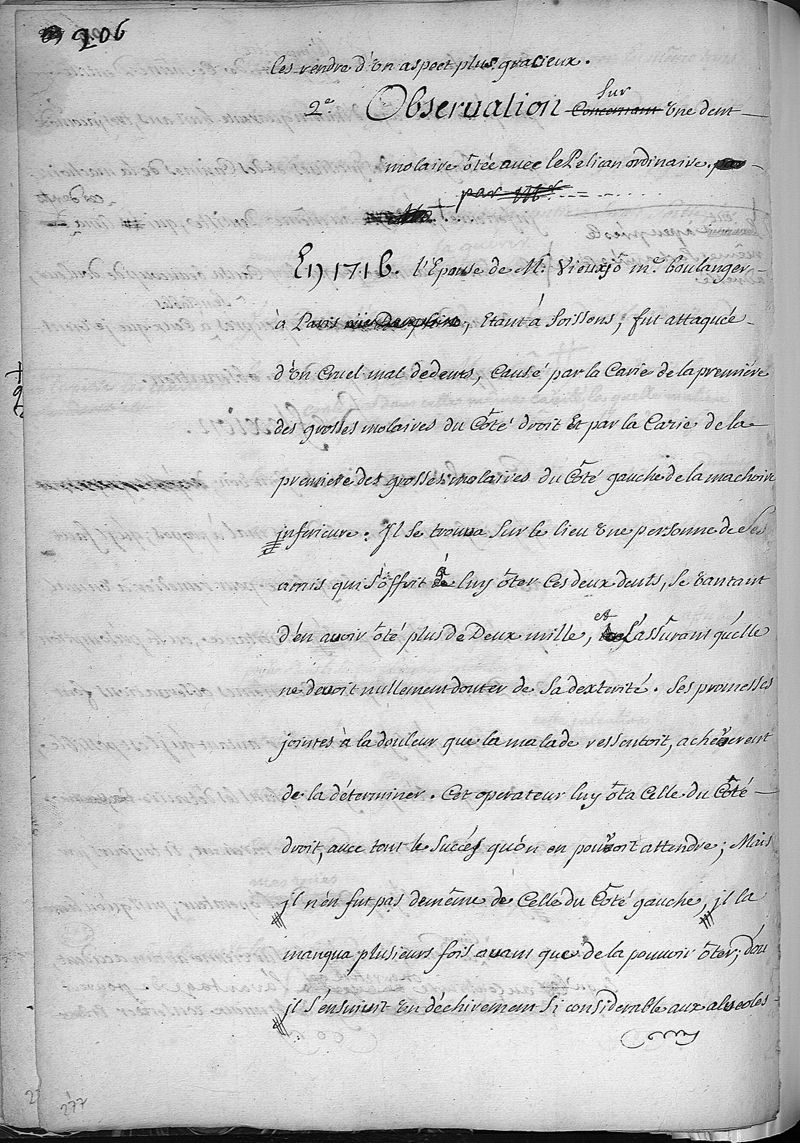 206
les rendre d'un aspect plus gracieux.
2e Observation Concernant sur une dent
molaire ôtée avec le Pelican ordinaire.
par
En 1716. l'Epouse de Mr. me. boulanger
à Paris rue Dauphine, Etant à Soissons, fut attaquée
d'un Cruel mal de dents, Causé par la Carie de la premiére
des grosses molaires du Côté droit Et par la Carie de la
premiere des grosses molaires du Côté gauche de la machoire
inferieure. Il se trouva Sur le lieu une personne de Ses
amis qui s'offrit à luy ôter Ces deux dents, Se vantant
d'en avoir ôté plus de Deux mille, et l'assurant qu'elle
ne devoit nullement douter de Sa dexterité. Ses promesses
jointes à la douleur que la malade ressentoit, acheverent
de la déterminer. Cet operateur luy ôta Celle du Côté
droit, avec tout le Succés qu'on en pouvoit attendre; Mais
jl n'en fut pas de même de Celle du Côté gauche, jl la
manqua plusieurs fois avant que de la pouvoir ôter; d'ou
jl s'ensuivit un déchirement Si considerable aux alveoles
277